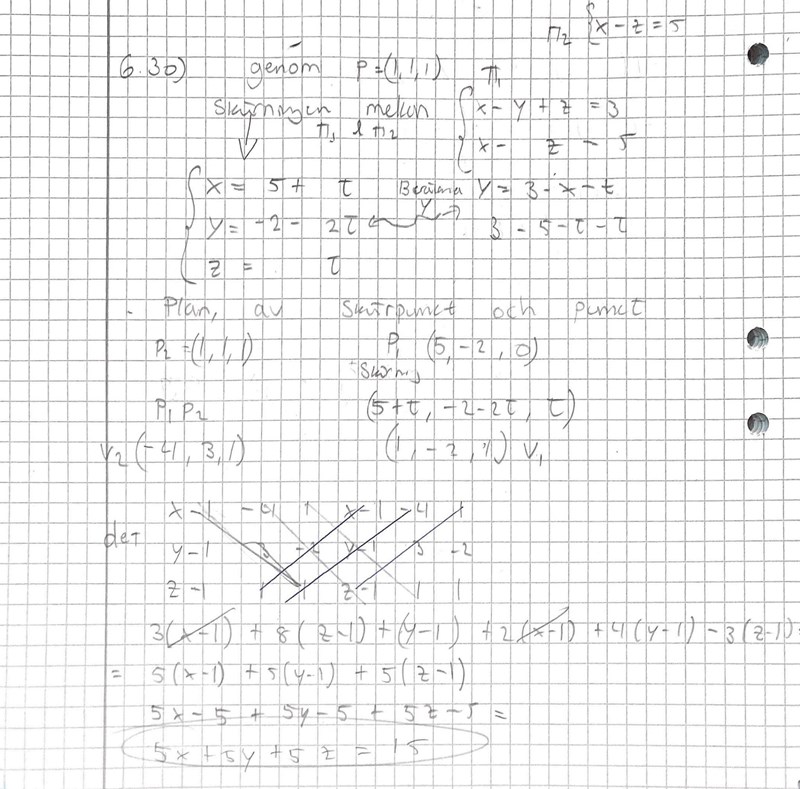 π₂ { x - z = 5
6.3b) genom P=(1,1,1) π₁
Skärningen mellan { x - y + z = 3
π₁ & π₂ x - z = 5
{ x = 5 + τ Beräkna y = 3 - x - z
y = -2 - 2τ y 3 - 5 - τ - τ
z = τ
Plan, av skärpunct och punct
P₂ = (1, 1, 1) P₁ (5, -2, 0)
Skärning
P₁P₂ (5+τ, -2-2τ, τ)
V₂ (-4, 3, 1) (1, -2, 1) V₁
x-1 -4 1 x-1 -4 1
det y-1 3 -2 y-1 3 -2
z-1 1 1 z-1 1 1
3(x-1) + 8(z-1) + (y-1) + 2(x-1) + 4(y-1) - 3(z-1) =
= 5(x-1) + 5(y-1) + 5(z-1)
5x - 5 + 5y - 5 + 5z - 5 =
5x + 5y + 5z = 15